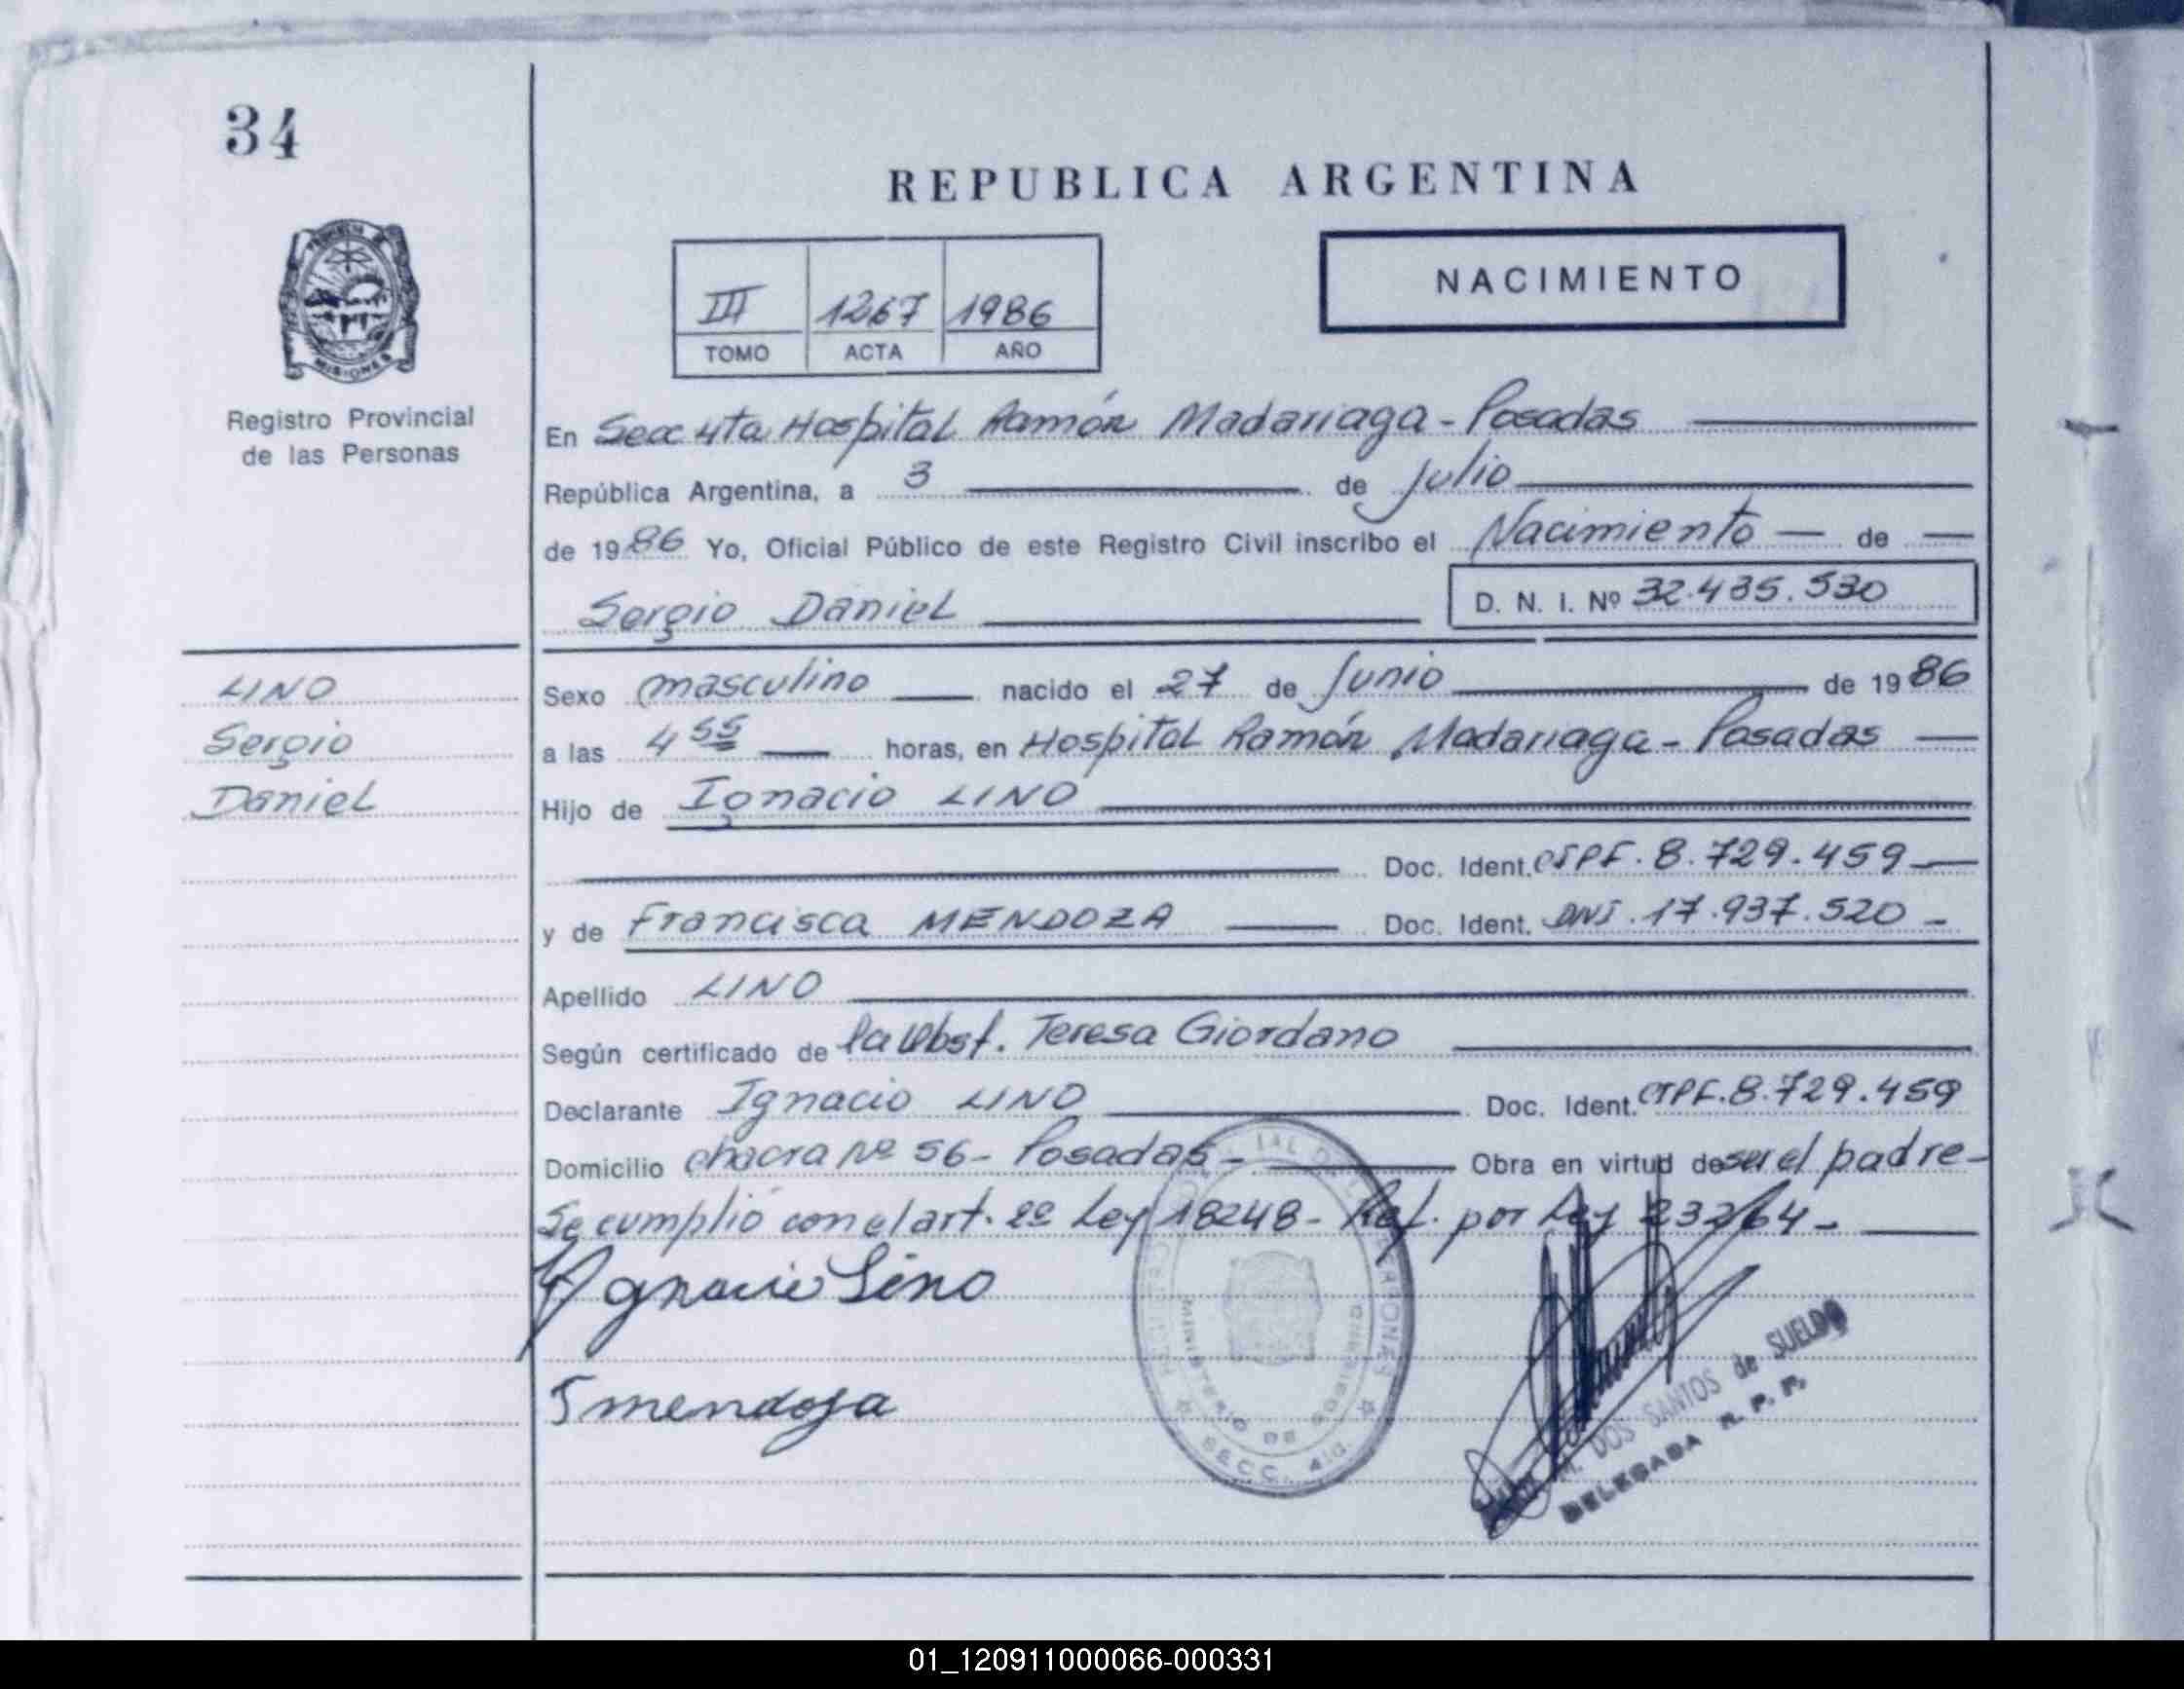 34
REPUBLICA ARGENTINA
NACIMIENTO
III 1267 1986
TOMO ACTA AÑO
PROVINCIA DE MISIONES
Registro Provincial
de las Personas
En Secc 4ta Hospital Ramón Madariaga - Posadas
República Argentina, a 3 de Julio
de 1986 Yo, Oficial Público de este Registro Civil inscribo el Nacimiento — de —
Sergio Daniel D. N. I. Nº 32.435.530
LINO
Sergio
Daniel
Sexo masculino nacido el 27 de Junio de 1986
a las 4 55 horas, en Hospital Ramón Madariaga - Posadas
Hijo de Ignacio LINO
Doc. Ident. CIPF. 8.729.459
y de Francisca MENDOZA Doc. Ident. DNI. 17.937.520 -
Apellido LINO
Según certificado de la Obst. Teresa Giordano
Declarante Ignacio LINO Doc. Ident. CIPF. 8.729.459
Domicilio chacra Nº 56 - Posadas - Obra en virtud de ser el padre -
Se cumplió con el art. 2º Ley 18248 - Ref. por Ley 23264 -
Ignacio Lino
F mendosa
MINISTERIO DE GOBIERNO
SECC. 4ta.
DOS SANTOS de SUELDO
DELEGADA R. P. P.
01_120911000066-000331